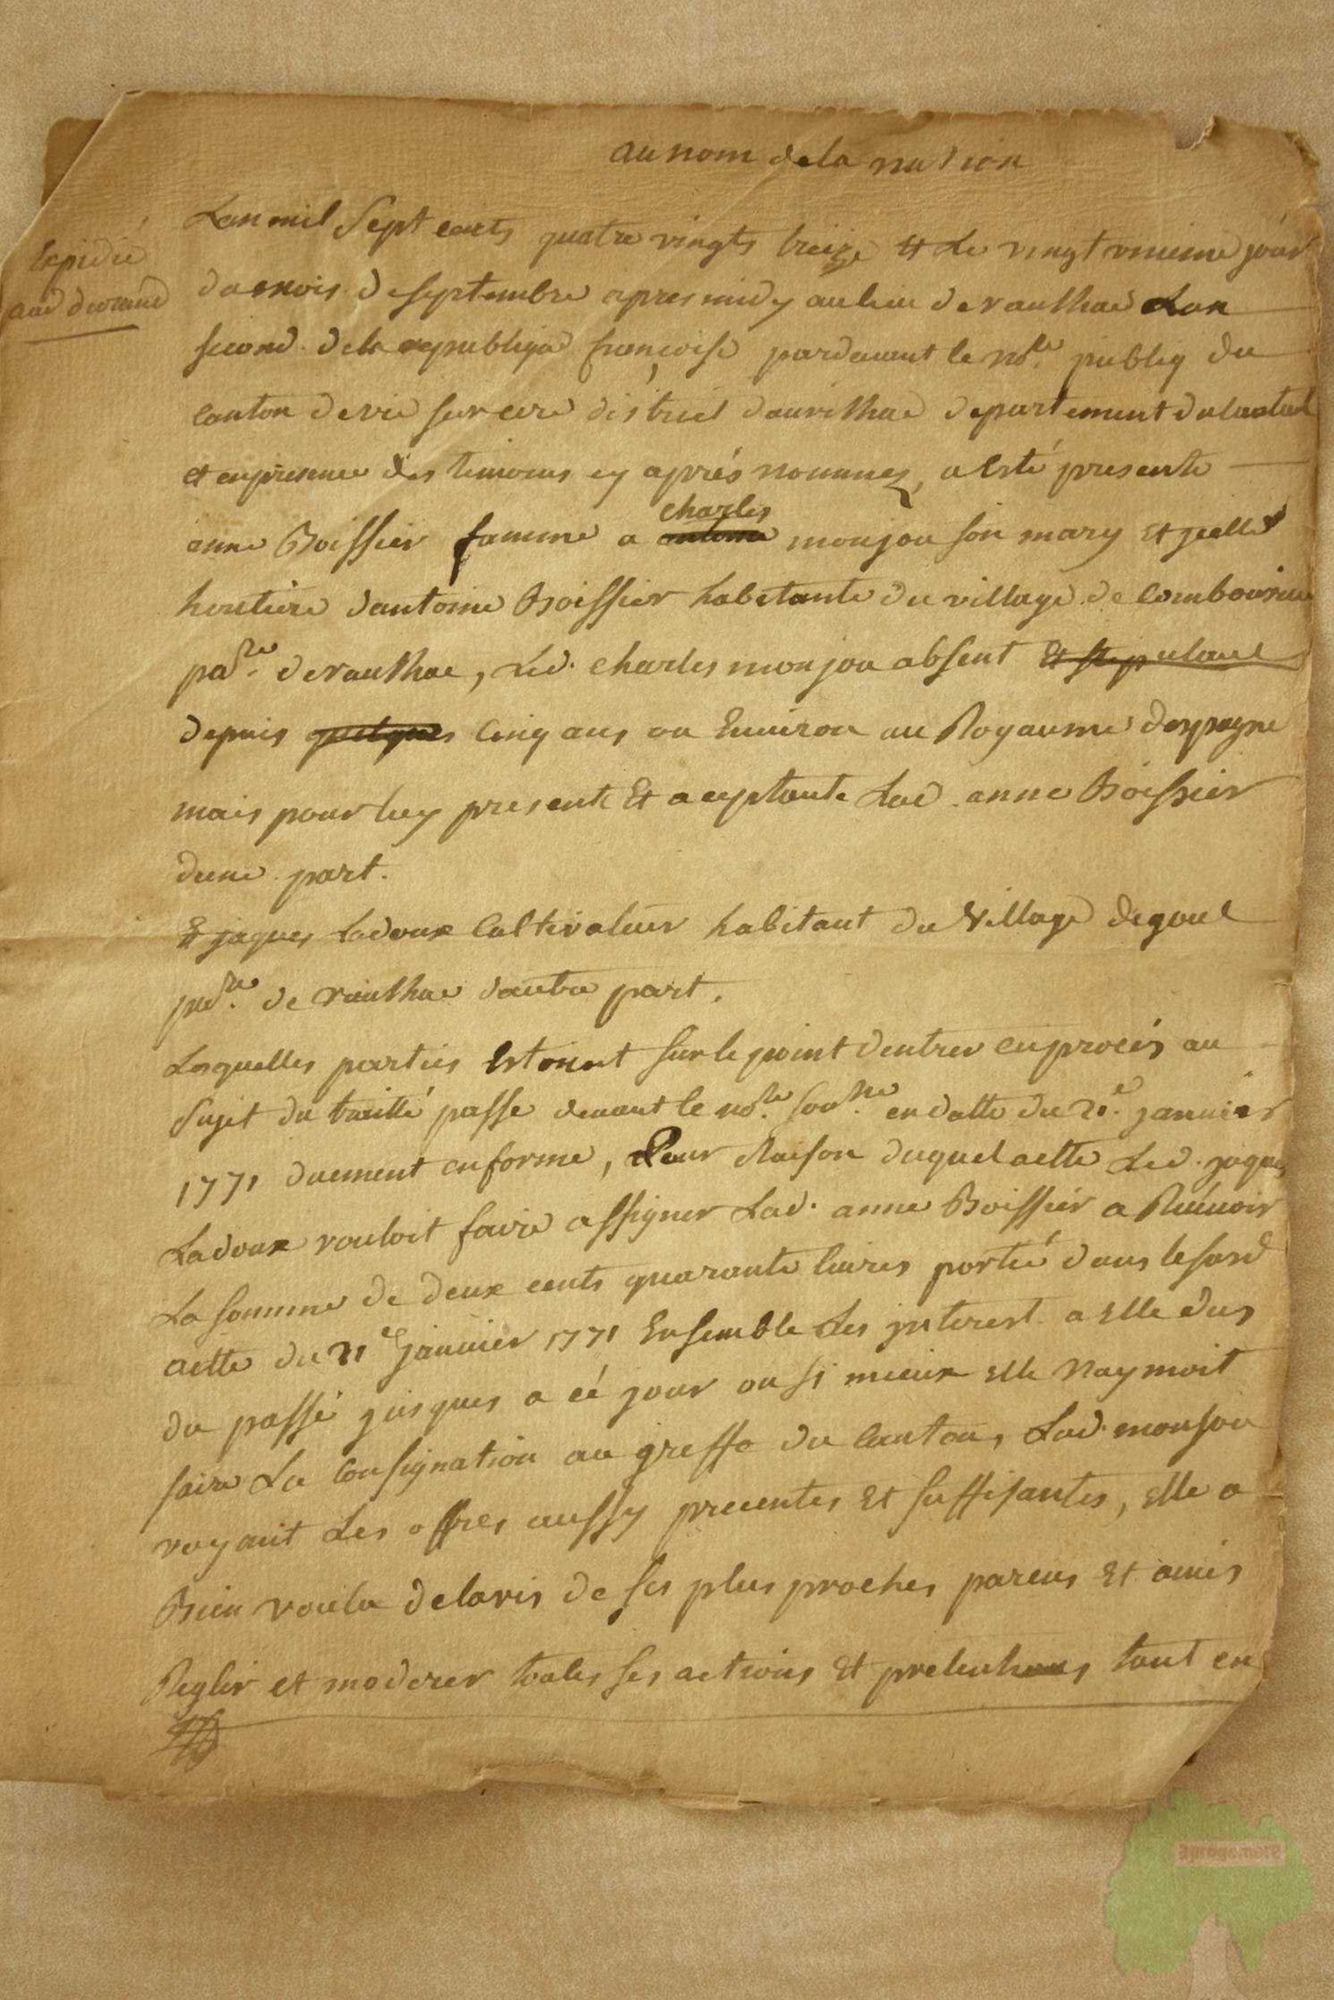 au nom de la nation
Lan mil Sept cents quatre vingts treize et Le vingt unieme jour
du mois de septembre apres midy au lieu de raulhac Lan
second de la republique françoise pardevant le nore. publiq du
canton de vic sur cere district daurilhac departement du cantal
et en presence des temoins cy aprés nommez, a Esté presente
anne Boissier famme a charles monjou son mary Et jcelle
heritiere dantoine Boissier habitante du village de Combourieu
parre. de raulhac, Led. charles monjou absent Et stipulant
depuis quelques Cinq ans ou Environ au Royaume despagne
mais pour luy presente Et aceptante Lad. anne Boissier
dune part.
Et jaques Ladoux Cultivateur habitant du Village de goul
parre. de raulhac dautre part.
Lesquelles parties Estoient sur le point dentrer en procés au
sujet du traitté passe devant le nore. soune. en datte du 21e janvier
1771 duement en forme, Pour Raison duquel acte Led. jaques
Ladoux vouloit faire assigner Lad. anne Boissier a
La somme de deux cents quarante livres portée dans le susd
acte du 21e janvier 1771 Ensemble Les jnterest a Elle dus
du passé jusques a cé jour ou si mieux Elle Naymoit
faire La Consignation au greffe du Canton, Lad. monjou
voyant Les offres aussy Et suffisantes, Elle a
Bien voulu de lavis de ses plus proches parens Et amis
Regler et moderer toutes ses actions Et pretentions tant en
Expédié